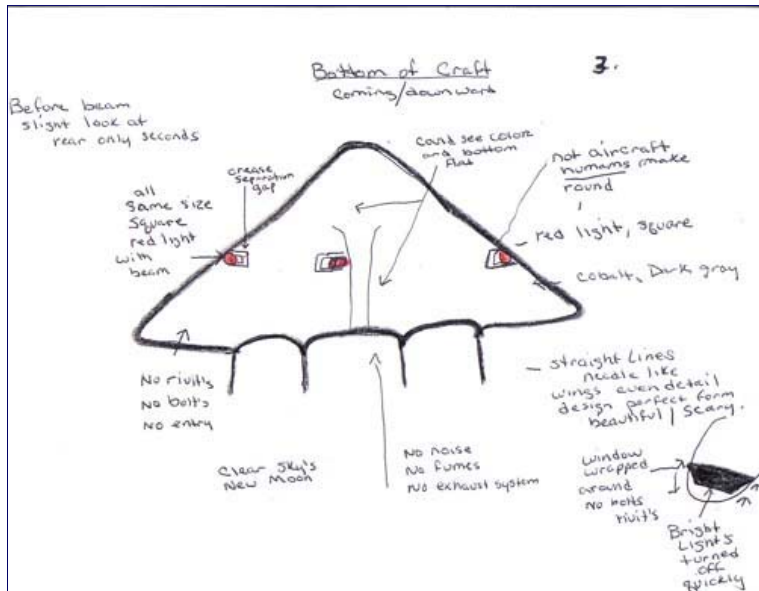 Bottom of Craft
coming/downward
3.
Before beam
slight look at
rear only seconds
could see color
and bottom
flat
not aircraft
humans make
round
crease
separation
gap
all
same size
square
red light
with
beam
red light, square
cobalt, Dark gray
No rivit's
No bolts
No entry
straight Lines
needle like
wings even detail
design perfect form
beautiful / Scary.
Clear Sky's
New Moon
No noise
No fumes
No exhaust system
window
wrapped
around
No bolts
rivit's
Bright
Light's
turned
off
quickly